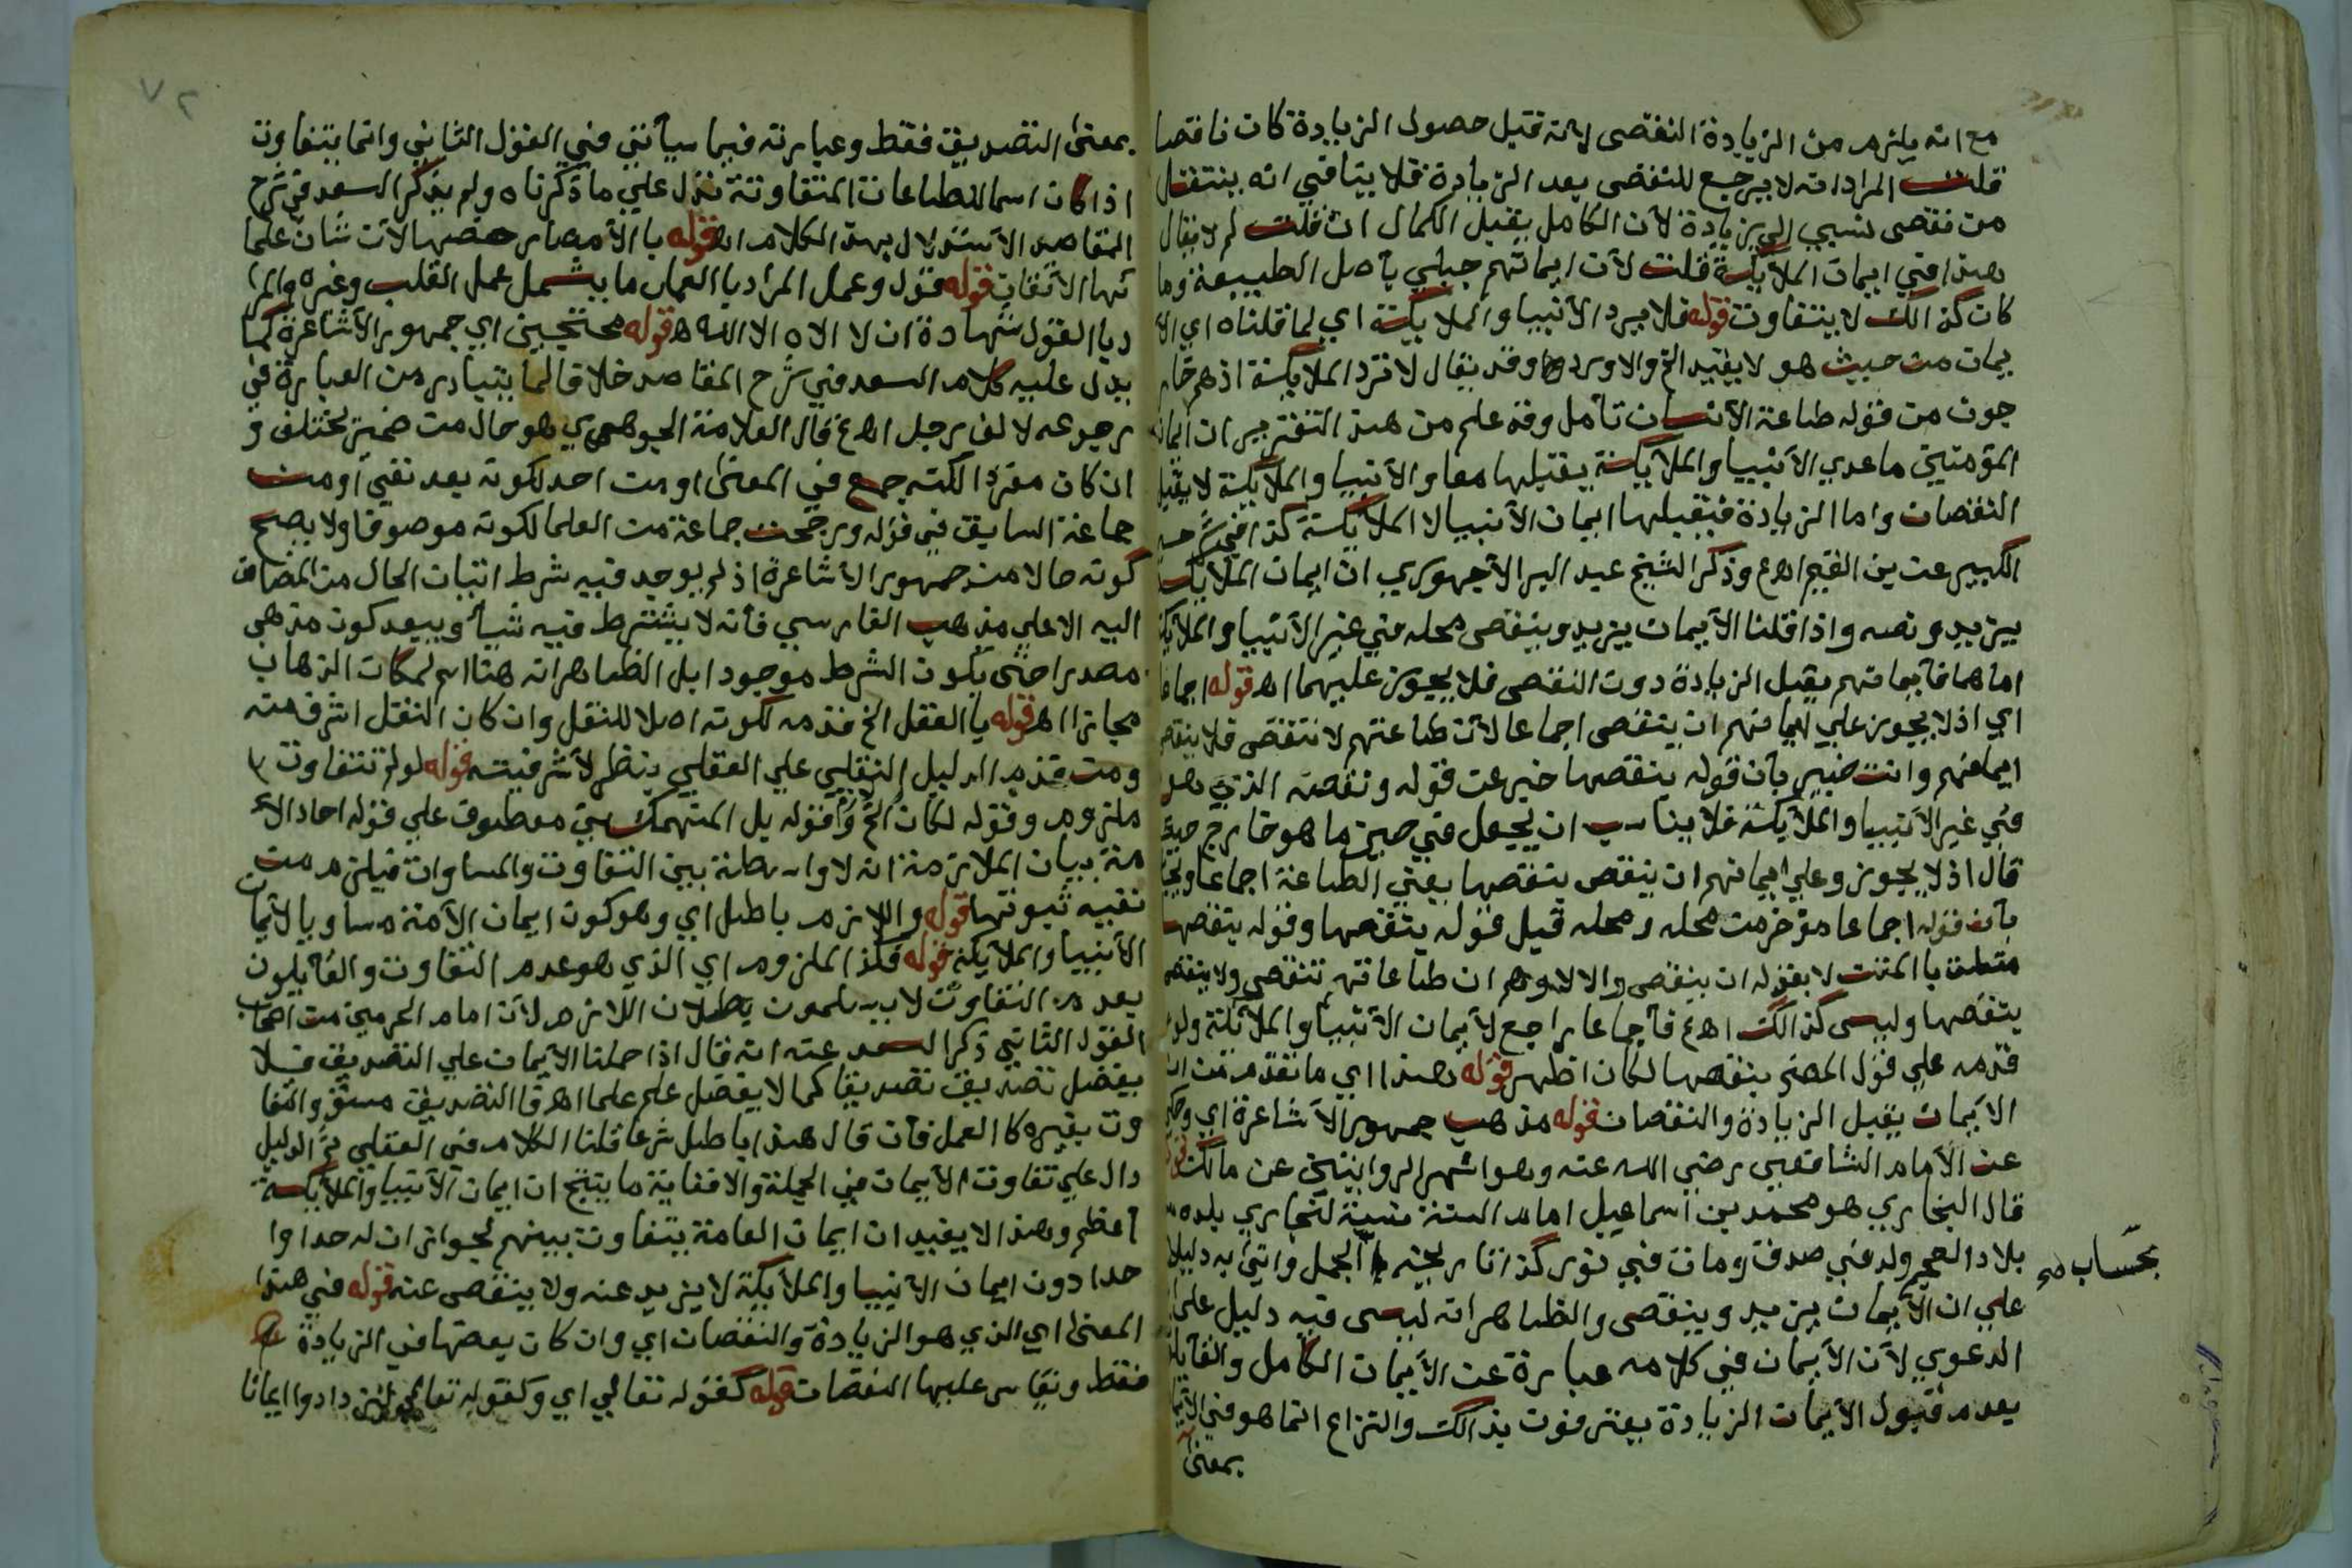 مع انه يلزم من الزيادة النقص لانه قبل حصول الزيادة كان ناقصا
قلت المراد انه لا يرجع للنقص بعد الزيادة فلا ينافي انه ينتقل
من نقص نسبي الي زيادة لان الكامل يقبل الكمال ان قلت لم لا يقال
هذا في ايمان الملايكة قلت لان ايمانهم جبلي باصل الطبيعة وما
كان كذالك لا يتفاوت قوله فلا يرد الانبيا والملايكة اي لما قلناه اي الا
يمان من حيث هو لا بقيد الخ والا ورد وقد يقال لا ترد الملايكة اذ هم خار
جون من قوله طاعة الانسان تأمل وقد علم من هذ التقرير ان ايمان
المؤمنين ما عدي الانبيا والملايكة يقبلهما معا والانبيا والملايكة لا يقبل
النقصان واما الزيادة فيقبلها ايمان الانبيا لا الملايكة كذا في شرحه
الكبير عن بن القيم اه ع وذكر الشيخ عبد البر الاجهوري ان ايمان الملايكة
يزيد ونصه واذا قلنا الايمان يزيد وينقص محله في غير الانبيا والملايكة
اما هما فايمانهم يقبل الزيادة دون النقص فلا يجوز عليهما اه قوله اجماعا
اي اذ لا يجوز علي ايمانهم ان ينقص اجماعا لان طاعتهم لا تنقص فلا ينقص
ايمانهم وانت خبير بان قوله ينقصها خبر عن قوله ونقصه الذي
في غير الانبيا والملايكة فلا يناسب ان يجعل في حيز ما هو خارج
قال اذ لا يجوز وعلي ايمانهم ان ينقص بنقصها يعني الطاعة اجماعا
بان قوله اجماعا مؤخر من محله ومحله قبل قوله بنقصها وقوله بنقصها
متعلق بالمتن لا بقوله ان ينقص والا لاوهم ان طاعاتهم تنقص ولا ينقص
بنقصها وليس كذالك اه ع فاجماعا راجع لايمان الانبيا والملايكة ولو
قدمه علي قول المص بنقصها لكان اظهر قوله هذا اي ما تقدم من ان
الايمان يقبل الزيادة والنقصان قوله مذهب جمهور الاشاعرة اي
عن الامام الشافعي رضي الله عنه وهو اشهر الروايتين عن مالك
قال البخاري هو محمد بن اسماعيل امام السنة نسبة لبخاري بلده
بلاد العجم ولد في صدق ومات في نور كذا تاريخه الجمل واتي به دليلا
بحساب
علي ان الايمان يزيد وينقص والظاهر انه ليس فيه دليل علي
الدعوي لان الايمان في كلامه عبارة عن الايمان الكامل والقايلون
بعدم قبول الايمان الزيادة يعترفون بذالك والنزاع انما هو في الايمان
بمعني
٧٢
بمعني التصديق فقط وعبارته فيما سيأتي في القول الثاني وانما يتفاوت
اذا كان اسما للطاعات المتفاوتة نزل علي ما ذكرناه ولم يذكر السعد في شرح
المقاصد الاستدلال بهذ الكلام اه قوله بالامصار خصها لان شان علما
ئها الاتقان قوله قول وعمل المراد بالعمل ما يشمل عمل القلب وغيره والمرا
د بالقول شهادة ان لا الاه الا الله اه قوله محتجين اي جمهور الاشاعرة كما
يدل عليه كلام السعد في شرح المقاصد خلافا لما يتبادر من العبارة في
رجوعه لالف رجل اه ع قال العلامة الجوهري هو حال من ضمير يختلف و
ان كان مفردا لكنه جمع في المعني او من احد لكونه بعد نفي او من
جماعة السابق في قوله ورجحت جماعة من العلما لكونه موصوفا ولا يصح
كونه حالا من جمهور الاشاعرة اذ لم يوجد فيه شرط اتيان الحال من المضاف
اليه الا علي مذهب الفارسي فانه لا يشترط فيه شيأ ويبعد كون مذهب
مصدرا حتي يكون الشرط موجودا بل الظاهر انه هنا اسم لمكان الذهاب
مجازا اه قوله بالعقل الخ قدمه لكونه اصلا للنقل وان كان النقل اشرف منه
ومن قدم الدليل النقلي علي العقلي ينظر لاشرفيته قوله لو لم تتفاوت
ملزوم وقوله لكان الخ وقوله بل المنهمكين معطوف علي قوله احاد الا
مة بيان الملازمة انه لا واسطة بين التفاوت والمساوات فيلزم من
نفيه ثبوتها قوله واللازم باطل اي وهو كون ايمان الامة مساويا لايمان
الانبيا والملايكة قوله فكذا الملزوم اي الذي هو عدم التفاوت والقايلون
بعدم التفاوت لا يسلمون بطلان اللازم لان امام الحرمين من اصحاب
القول الثاني ذكر السعد عنه انه قال اذا حملنا الايمان علي التصديق فلا
يفضل تصديق تصديقا كما لا يفضل علم علما اه فالتصديق مستو والتفا
وت بغيره كالعمل فان قال هذا باطل شرعا قلنا الكلام في العقلي ثم الدليل
دال علي تفاوت الايمان في الجملة والا فغاية ما ينتج ان ايمان الانبيا والملايكة
اعظم وهذ لا يفيد ان ايمان العامة يتفاوت بينهم لجواز ان له حدا وا
حدا دون ايمان الانبيا والملايكة لا يزيد عنه ولا ينقص عنه قوله في هذا
المعني اي الذي هو الزيادة والنقصان اي وان كان بعضها في الزيادة
فقط ونقاس عليها النقصان قوله كقوله تعالي اي وكقوله تعالي ليزدادوا ايمانا